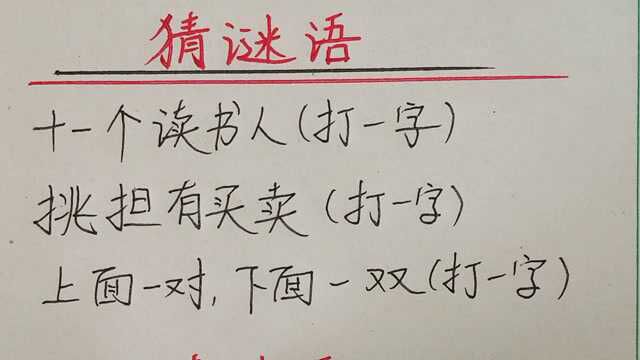 猜谜语
十一个读书人(打一字)
挑担有买卖(打一字)
上面一对,下面一双(打一字)